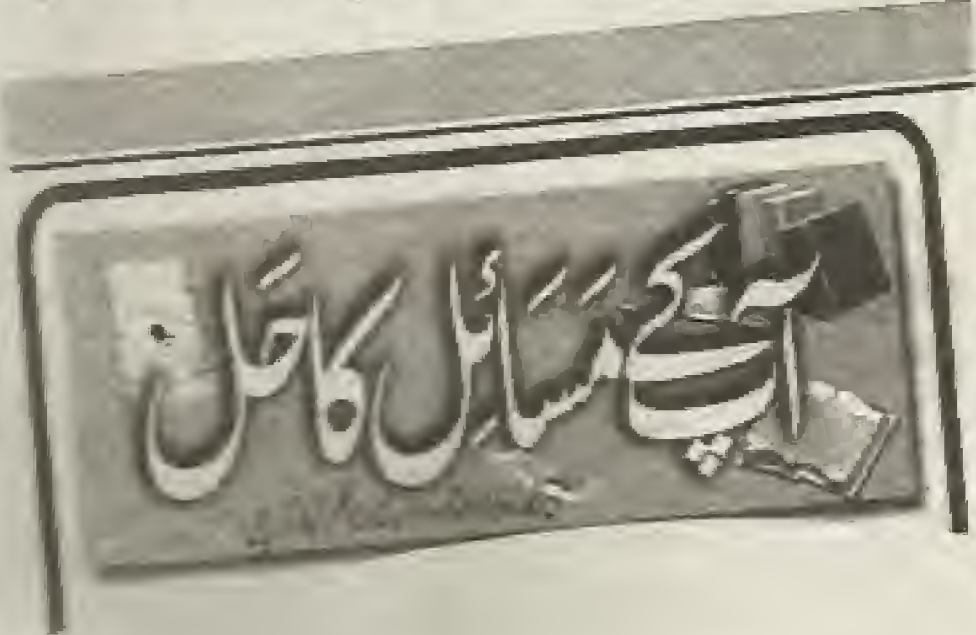 آپ کے مَسَائِل کا حَل